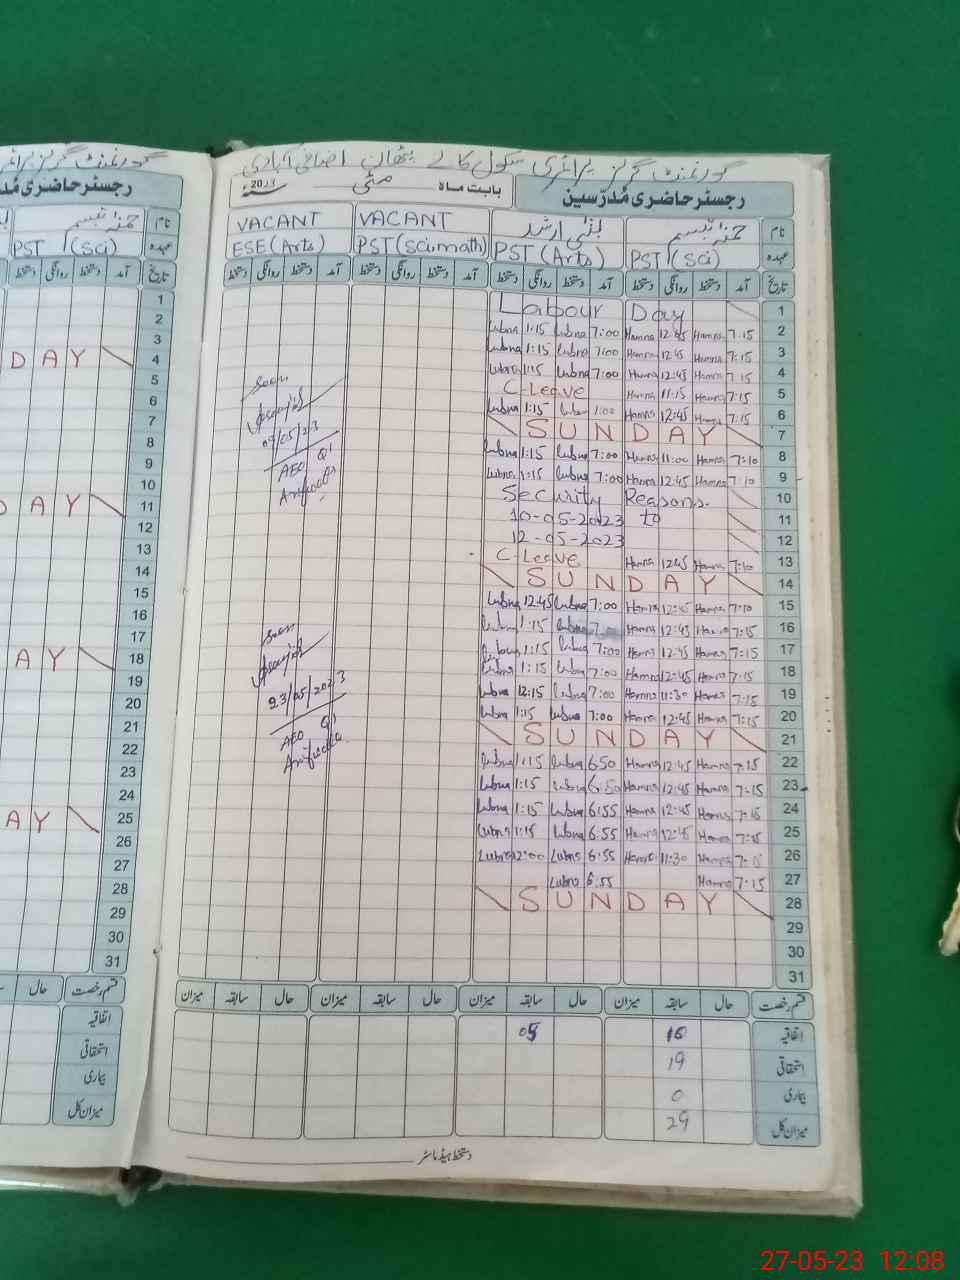 گورنمنٹ گرلز پرائمری سکول کالے پٹھان اضافی آبادی
رجسٹر حاضری مُدرّسین بابت ماہ مئی 2023
نام حمنہ تبسم لبنیٰ ارشد VACANT VACANT
عہدہ PST (Sci) PST (Arts) PST (Sci math) ESE (Arts)
تاریخ آمد دستخط روانگی دستخط آمد دستخط روانگی دستخط آمد دستخط روانگی دستخط آمد دستخط روانگی دستخط
Labour Day 1
Lubna 1:15 Lubna 7:00 Hamna 12:45 Hamna 7:15 2
Lubna 1:15 Lubna 7:00 Hamna 12:45 Hamna 7:15 3
Lubna 1:15 Lubna 7:00 Hamna 12:45 Hamna 7:15 4
C-Leave Hamna 11:15 Hamna 7:15 5
Lubna 1:15 Hamna 12:45 Hamna 7:15 6
SUNDAY 7
Lubna 1:15 Lubna 7:00 Hamna 11:00 Hamna 7:10 8
Lubna 1:15 Lubna 7:00 Hamna 12:45 Hamna 7:10 9
Security Reasons. 10
10-05-2023 to 11
12-05-2023 12
C-Leave Hamna 12:45 Hamna 7:10 13
SUNDAY 14
Lubna 12:45 Lubna 7:00 Hamna 12:45 Hamna 7:10 15
Lubna 1:15 Lubna Hamna 12:45 Hamna 7:15 16
Lubna 1:15 Lubna 7:00 Hamna 12:45 Hamna 7:15 17
Lubna 1:15 Lubna 7:00 Hamna 12:45 Hamna 7:15 18
Lubna 12:15 Lubna 7:00 Hamna 11:30 Hamna 7:15 19
Lubna 1:15 Lubna 7:00 Hamna 12:45 Hamna 7:15 20
SUNDAY 21
Lubna 1:15 Lubna 6:50 Hamna 12:45 Hamna 7:15 22
Lubna 1:15 Lubna 6:50 Hamna 12:45 Hamna 7:15 23
Lubna 1:15 Lubna 6:55 Hamna 12:45 Hamna 7:15 24
Lubna 1:15 Lubna 6:55 Hamna 12:45 Hamna 7:15 25
Lubna 12:00 Lubna 6:55 Hamna 11:30 Hamna 7:15 26
Lubna 6:55 Hamna 7:15 27
SUNDAY 28
29
30
31
Seen
09/05/23
AEO
Seen
23/05/2023
AEO
قسم رخصت حال سابقہ میزان حال سابقہ میزان حال سابقہ میزان حال سابقہ میزان
اتفاقیہ 10 05
استحقاقی 19
بیماری 0
میزان کل 29
دستخط ہیڈ ماسٹر
گورنمنٹ گرلز
رجسٹر حاضری مُد
نام حمنہ تبسم
عہدہ PST (Sci)
تاریخ آمد دستخط روانگی دستخط
1
2
3
DAY 4
5
6
7
8
9
10
DAY 11
12
13
14
15
16
17
AY 18
19
20
21
22
23
24
AY 25
26
27
28
29
30
31
قسم رخصت حال
اتفاقیہ
استحقاقی
بیماری
میزان کل
27-05-23 12:08